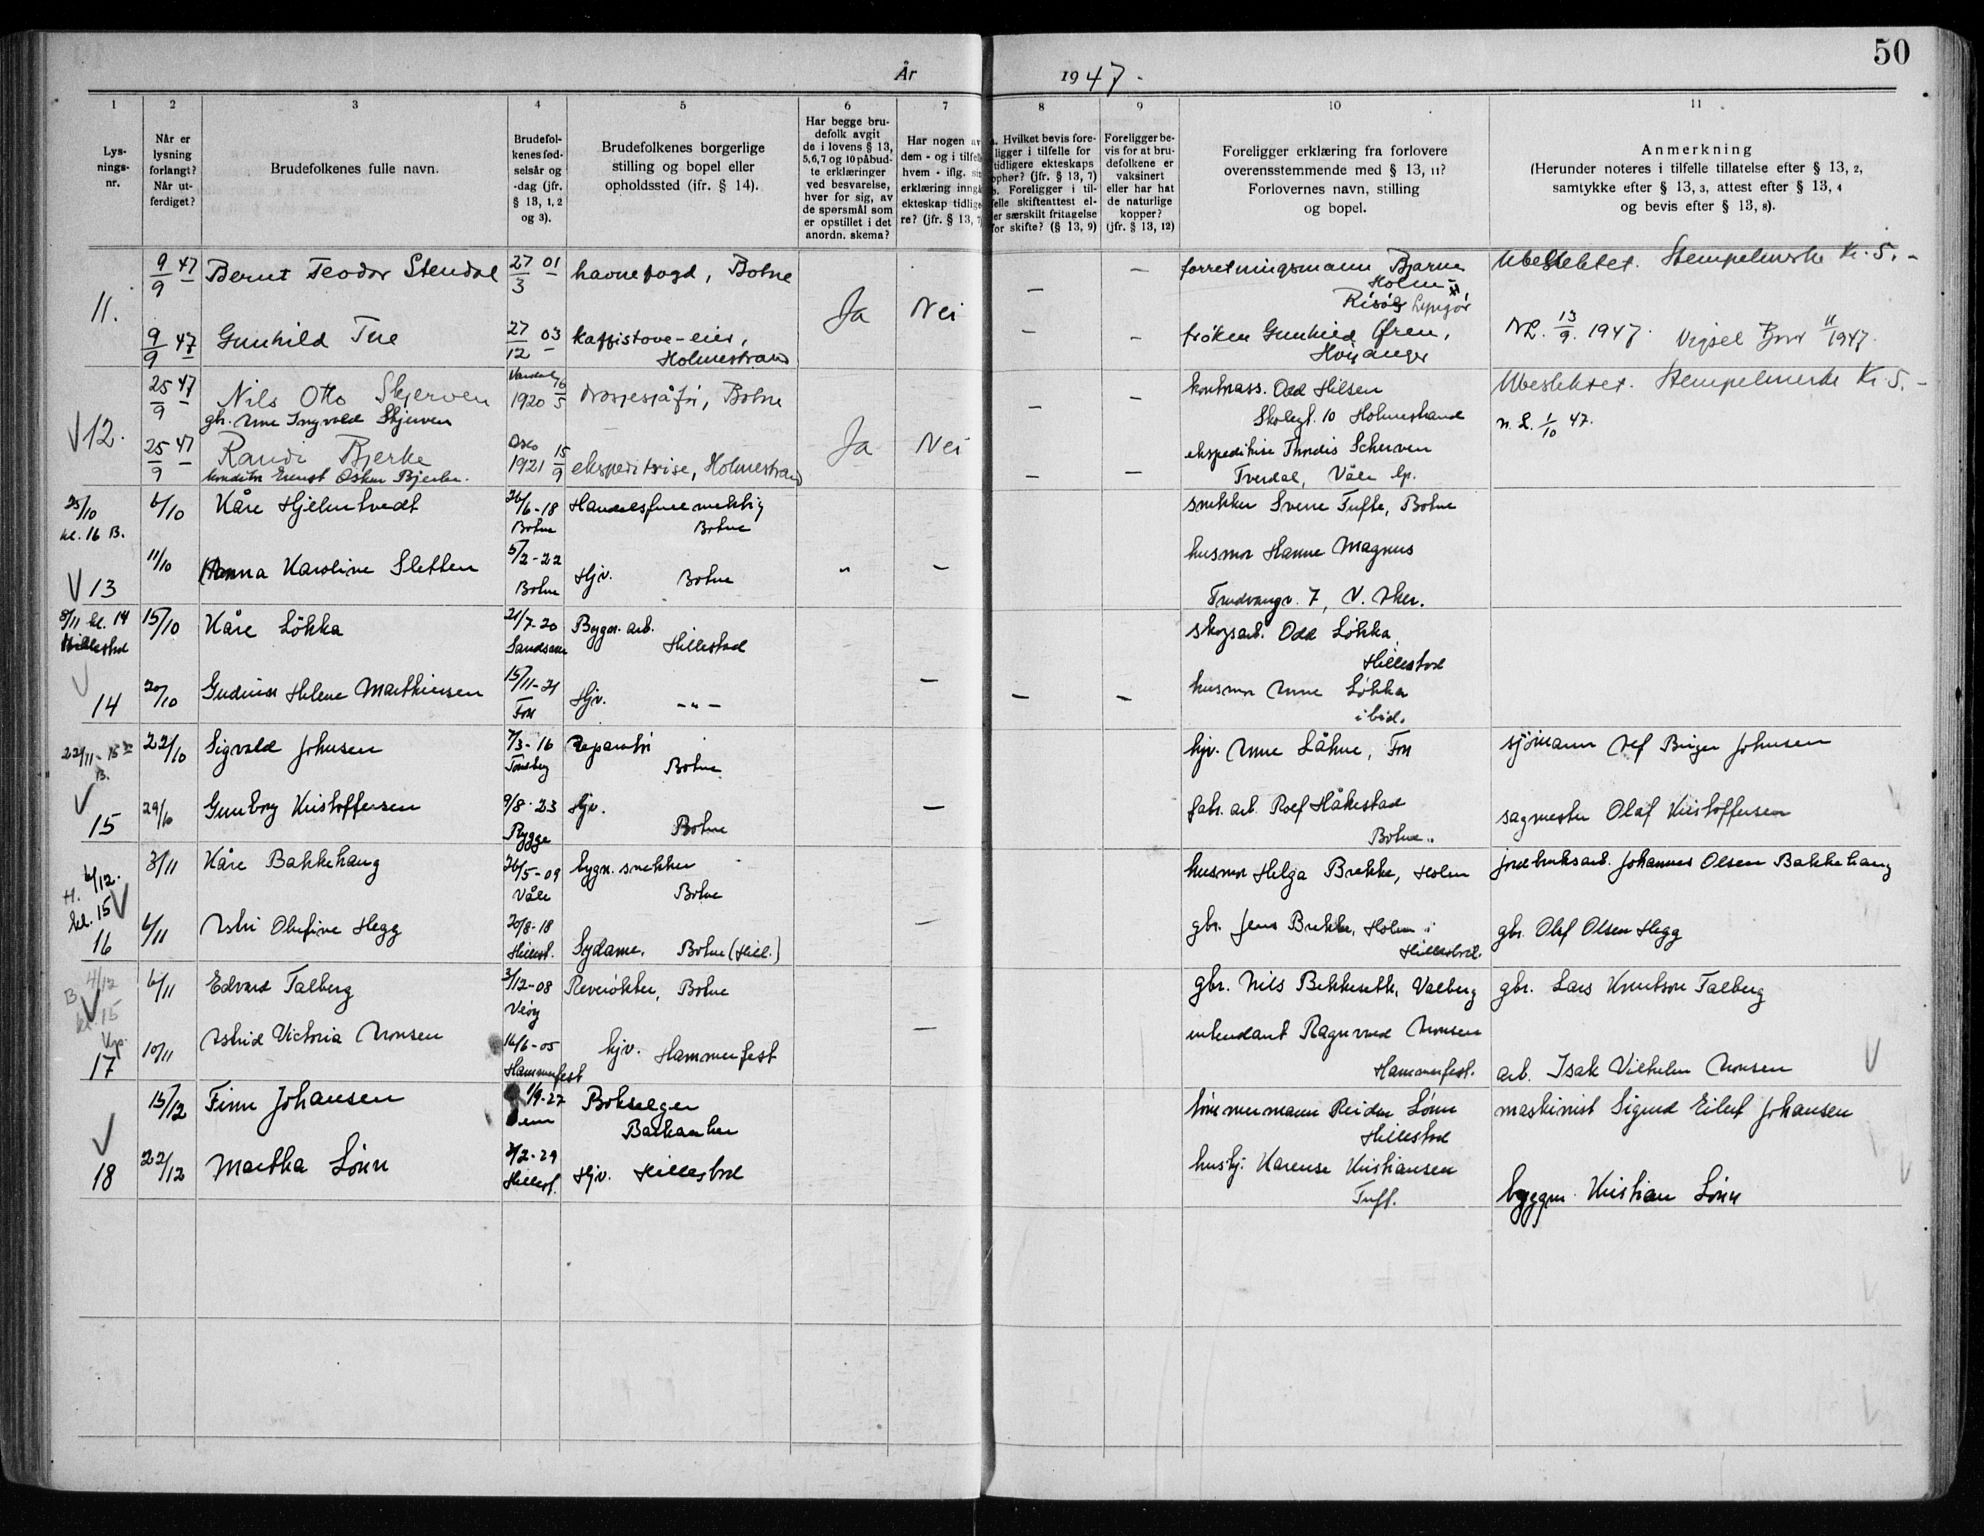 50
År 1947.
1 2 3 4 5 6 7 8 9 10 11
Lys-
nings-
nr.
Når er
lysning
forlangt?
Når ut-
ferdiget?
Brudefolkenes fulle navn.
Brudefol-
kenes fød-
selsår og
-dag (jfr.
§ 13, 1, 2
og 3).
Brudefolkenes borgerlige
stilling og bopel eller
opholdssted (jfr. § 14).
Har begge bru-
defolk avgit
de i lovens § 13,
5,6,7 og 10 påbud-
te erklæringer
ved besvarelse,
hver for sig, av
de spørsmål som
er opstillet i det
anordn. skema?
Har nogen av
dem - og i tilfelle
hvem - iflg. si
erklæring inngå
ekteskap tidlige
re? (jfr. § 13, 7)
a. Hvilket bevis fore-
ligger i tilfelle for
tidligere ekteskaps
ophør? (jfr. § 13, 7)
b. Foreligger i til-
felle skifteattest el-
ler særskilt fritagelse
for skifte? (§ 13, 9)
Foreligger be-
vis for at bru-
defolkene er
vaksinert
eller har hat
de naturlige
kopper?
(jfr. § 13, 12)
Foreligger erklæring fra forlovere
overensstemmende med § 13, 11?
Forlovernes navn, stilling
og bopel.
Anmerkning
(Herunder noteres i tilfelle tillatelse efter § 13, 2,
samtykke efter § 13, 3, attest efter § 13, 4
og bevis efter § 13, 8).
11.
9/9 47 Bernt Teodor Stendal 27/3 01 havnefogd, Botne - - forretningsmann Bjarne Ubeslektet. Stempelmerke Kr. 5.-
Holm
Ja Nei
Risør
9/9 47 Gunhild Tue 27/12 03 kaffistove-eier, - - frøken Gunhild Øren, N.L. 13/9. 1947. Vigsel 1947.
Holmestrand Høyanger
25/9 47 Nils Otto Skjerven 1920 16/5 drosjesjåfør, Botne - - Odd Nilsen Ubeslektet. Stempelmerke Kr 5.-
gbr. Arne Ingvald Skjerven Skoleg. 10 Holmestrand n. L. 1/10 47.
12. Ja Nei
25/9 47 Randi Bjerke Oslo 1921 15/9 ekspeditrise, Holmestrand - - ekspeditrise Thordis Scherven
konditor Ernst Oskar Bjerke. Tverdal, Våle
25/10 6/10 Kåre Hjelmtvedt 26/6-18 Handelsfullmektig snekker Sverre Tufte, Botne
kl. 16 B. Botne Botne
11/10 Anna Karoline Sletten 5/2-22 Hjv. Botne " - husmor Hanne Magnus
13 Botne Trudvangv. 7, V. Aker.
8/11 kl. 14 15/10 Kåre Løkka 21/7-20 Bygn. arb. skogsarb. Odd Løkka,
Hillestad Hillestad Hillestad
20/10 Gudrun Helene Marthinsen 15/11-21 Hjv. -"- - - - husmor Løkka
14 Fon ibid.
22/11 - 15 22/10 Sigvald Johnsen 7/3-16 Reparatør hjv. Fon sjømann Alf Birger Johnsen
B. Tønsberg Botne
29/10 Gunborg Kristoffersen 9/8-23 Hjv. - fabr. arb. Rolf Håkestad sagmester Olaf Kristoffersen
15 Rygge Botne Botne.
6/12. 3/11 Kåre Bakkehaug 26/5-09 bygn. snekker husmor Helga Brekke, Holm jordbruksarb. Johannes Olsen Bakkehaug
H. kl. 15 Våle Botne
6/11 Astri Olufine Hegg 20/8-18 - gbr. Jens Brekke, Holm i gbr. Olaf Olsen Hegg
16 Hillest. Sydame. Botne (Hill.) Hillestad.
4/12 6/11 Edvard Talberg 3/12-08 Reverøkter, Botne gbr. Nils Bekkeseth, Valberg gbr. Lars Knutson Talberg
B. kl. 15 Veøy
10/11 Astrid Victoria Monsen 16/6-05 hjv. Hammerfest - intendant Ragnvald Monsen
17 Hammerfest Hammerfest. arb. Isak Vilhelm Monsen
15/12 Finn Johansen 1/9-27 Bokselger tømmermann Reidar Lønn maskinist Sigurd Eiluf Johansen
Barkaaker Hillestad
22/12 Martha Lønn 2/2-29 Hjv. Hillestad husbj. Karense Kristiansen
18 Hillest. Tuft. byggm. Kristian Lønn